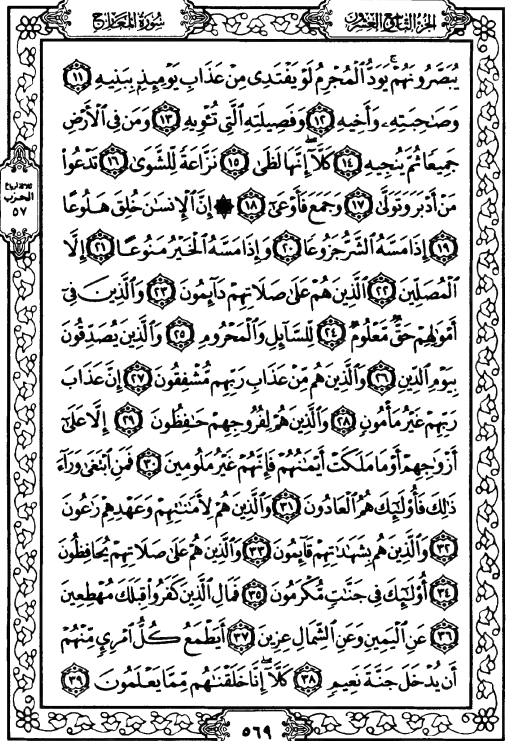 سورة المعارج
الجزء التاسع والعشرون
يُبَصَّرُونَهُمْ يَوَدُّ الْمُجْرِمُ لَوْ يَفْتَدِي مِنْ عَذَابِ يَوْمِئِذٍ بِبَنِيهِ ١١
وَصَاحِبَتِهِ وَأَخِيهِ ١٢ وَفَصِيلَتِهِ الَّتِي تُـْٔوِيهِ ١٣ وَمَن فِي الْأَرْضِ
جَمِيعًا ثُمَّ يُنجِيهِ ١٤ كَلَّا إِنَّهَا لَظَىٰ ١٥ نَزَّاعَةً لِّلشَّوَىٰ ١٦ تَدْعُوا
مَنْ أَدْبَرَ وَتَوَلَّىٰ ١٧ وَجَمَعَ فَأَوْعَىٰ ١٨ إِنَّ الْإِنسَٰنَ خُلِقَ هَلُوعًا
١٩ إِذَا مَسَّهُ الشَّرُّ جَزُوعًا ٢٠ وَإِذَا مَسَّهُ الْخَيْرُ مَنُوعًا ٢١ إِلَّا
الْمُصَلِّينَ ٢٢ الَّذِينَ هُمْ عَلَىٰ صَلَاتِهِمْ دَآئِمُونَ ٢٣ وَالَّذِينَ فِي
أَمْوَٰلِهِمْ حَقٌّ مَّعْلُومٌ ٢٤ لِّلسَّآئِلِ وَالْمَحْرُومِ ٢٥ وَالَّذِينَ يُصَدِّقُونَ
بِيَوْمِ الدِّينِ ٢٦ وَالَّذِينَ هُم مِّنْ عَذَابِ رَبِّهِم مُّشْفِقُونَ ٢٧ إِنَّ عَذَابَ
رَبِّهِمْ غَيْرُ مَأْمُونٍ ٢٨ وَالَّذِينَ هُمْ لِفُرُوجِهِمْ حَٰفِظُونَ ٢٩ إِلَّا عَلَىٰ
أَزْوَٰجِهِمْ أَوْ مَا مَلَكَتْ أَيْمَٰنُهُمْ فَإِنَّهُمْ غَيْرُ مَلُومِينَ ٣٠ فَمَنِ ابْتَغَىٰ وَرَآءَ
ذَٰلِكَ فَأُولَٰٓئِكَ هُمُ الْعَادُونَ ٣١ وَالَّذِينَ هُمْ لِأَمَٰنَٰتِهِمْ وَعَهْدِهِمْ رَٰعُونَ
٣٢ وَالَّذِينَ هُم بِشَهَٰدَٰتِهِمْ قَآئِمُونَ ٣٣ وَالَّذِينَ هُمْ عَلَىٰ صَلَاتِهِمْ يُحَافِظُونَ
٣٤ أُولَٰٓئِكَ فِي جَنَّٰتٍ مُّكْرَمُونَ ٣٥ فَمَالِ الَّذِينَ كَفَرُوا قِبَلَكَ مُهْطِعِينَ
٣٦ عَنِ الْيَمِينِ وَعَنِ الشِّمَالِ عِزِينَ ٣٧ أَيَطْمَعُ كُلُّ امْرِئٍ مِّنْهُمْ
أَن يُدْخَلَ جَنَّةَ نَعِيمٍ ٣٨ كَلَّا إِنَّا خَلَقْنَٰهُم مِّمَّا يَعْلَمُونَ ٣٩
الحزب
٥٧
٥٦٩